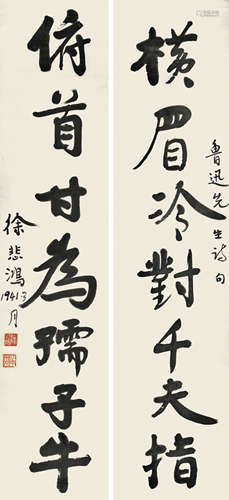 橫眉冷對千夫指
魯迅先生詩句
俯首甘為孺子牛
徐悲鴻
1941 3月